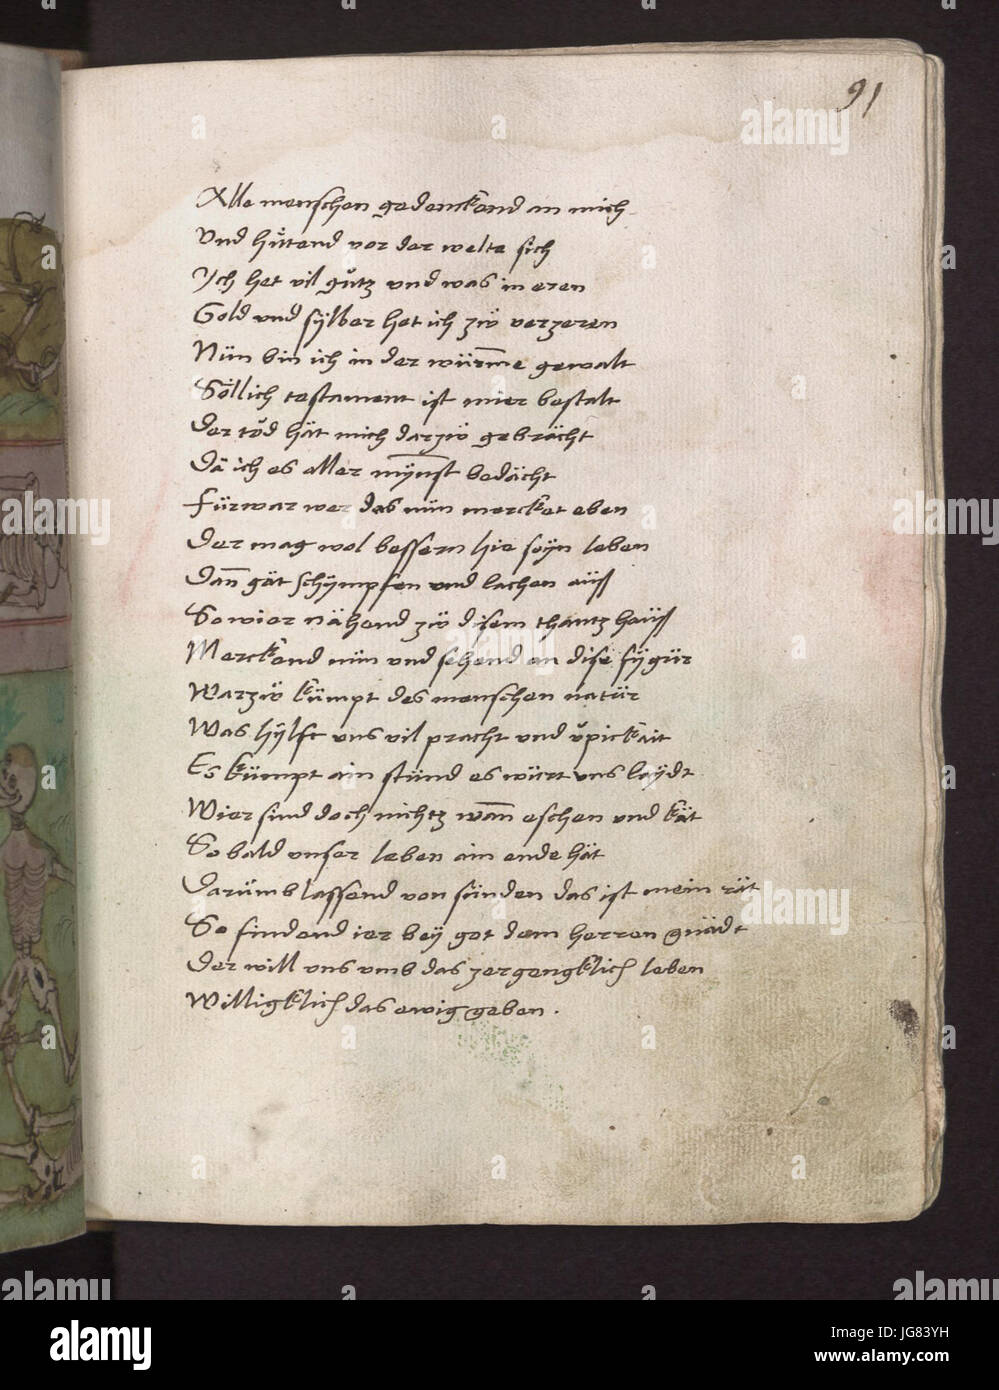 91
Alle menschen gedenckend an mich
Und hůtend vor der welte sich
Ich het vil gůtz und was in eren
Gold und sÿlber het ich zů verzeren
Nün bin ich in der würme gewalt
Söllich testament ist mier bestalt
Der tod hät mich darzů gebrächt
Dä ich es aller mÿnst bedächt
Fürwar wer das nün mercket eben
Der mag wol bessern hie seÿn leben
Dann gät schÿmpfen und lachen auß
So wier nähend zů disem thantz hauß
Merckend nün und sehend an dise fÿgür
Warzů kümpt des menschen natür
Was hÿlft uns vil pracht und üpickait
Es kümpt ain stünd es würt uns leÿdt
Wier sind doch nichtz wann eschen und kät
So bald unser leben ain ende hät
Darümb lassend von sünden das ist mein rät
So findend ier beÿ got dem herren gnädt
Der will uns umb das zergengklich leben
Willigklich das ewig geben .
alamy
JG83YH
www.alamy.com